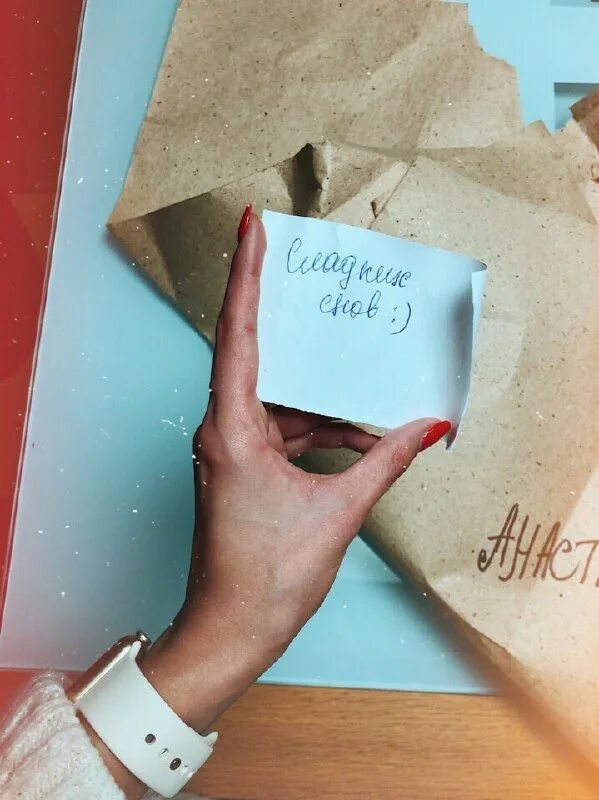 Сладких
снов :)
АНАСТ